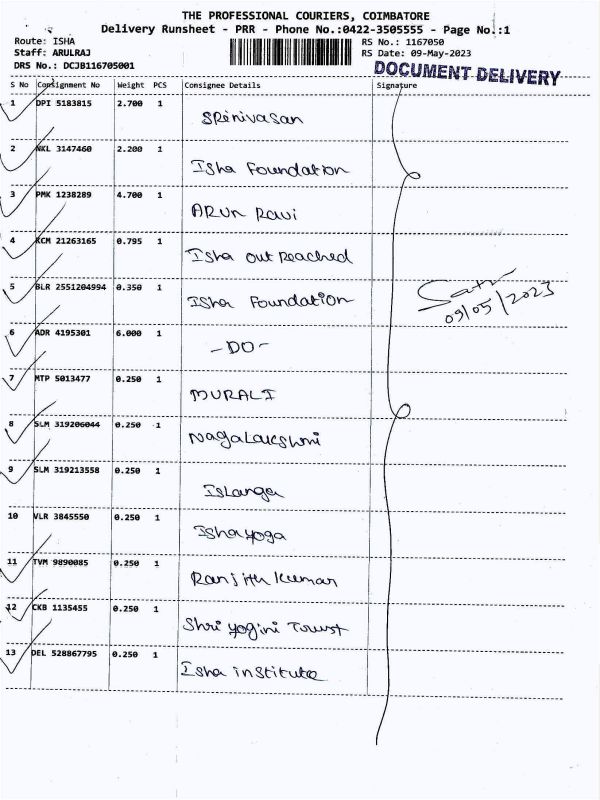 THE PROFESSIONAL COURIERS, COIMBATORE
Delivery Runsheet - PRR - Phone No.:0422-3505555 - Page No.:1
Route: ISHA RS No.: 1167050
Staff: ARULRAJ RS Date: 09-May-2023
DRS No.: DCJB116705001
DOCUMENT DELIVERY
S No Consignment No Weight PCS Consignee Details Signature
1 DPI 5183815 2.700 1 Srenivasan
2 NKL 3147460 2.200 1 Isha Foundation
3 PMK 1238289 4.700 1 ARUN Ravi
4 KCM 21263165 0.795 1 Isha out Reached
5 BLR 2551204994 0.350 1 Isha Foundation
09/05/2023
6 ADR 4195301 6.000 1 -DO-
7 MTP 5013477 0.250 1 MURALI
8 SLM 319206044 0.250 1 NagaLakshmi
9 SLM 319213558 0.250 1 IsLanga
10 VLR 3845550 0.250 1 Isha yoga
11 TVM 9890085 0.250 1 Ranjith Kumar
12 CKB 1135455 0.250 1 Shri yogini Trust
13 DEL 528867795 0.250 1 Isha institute